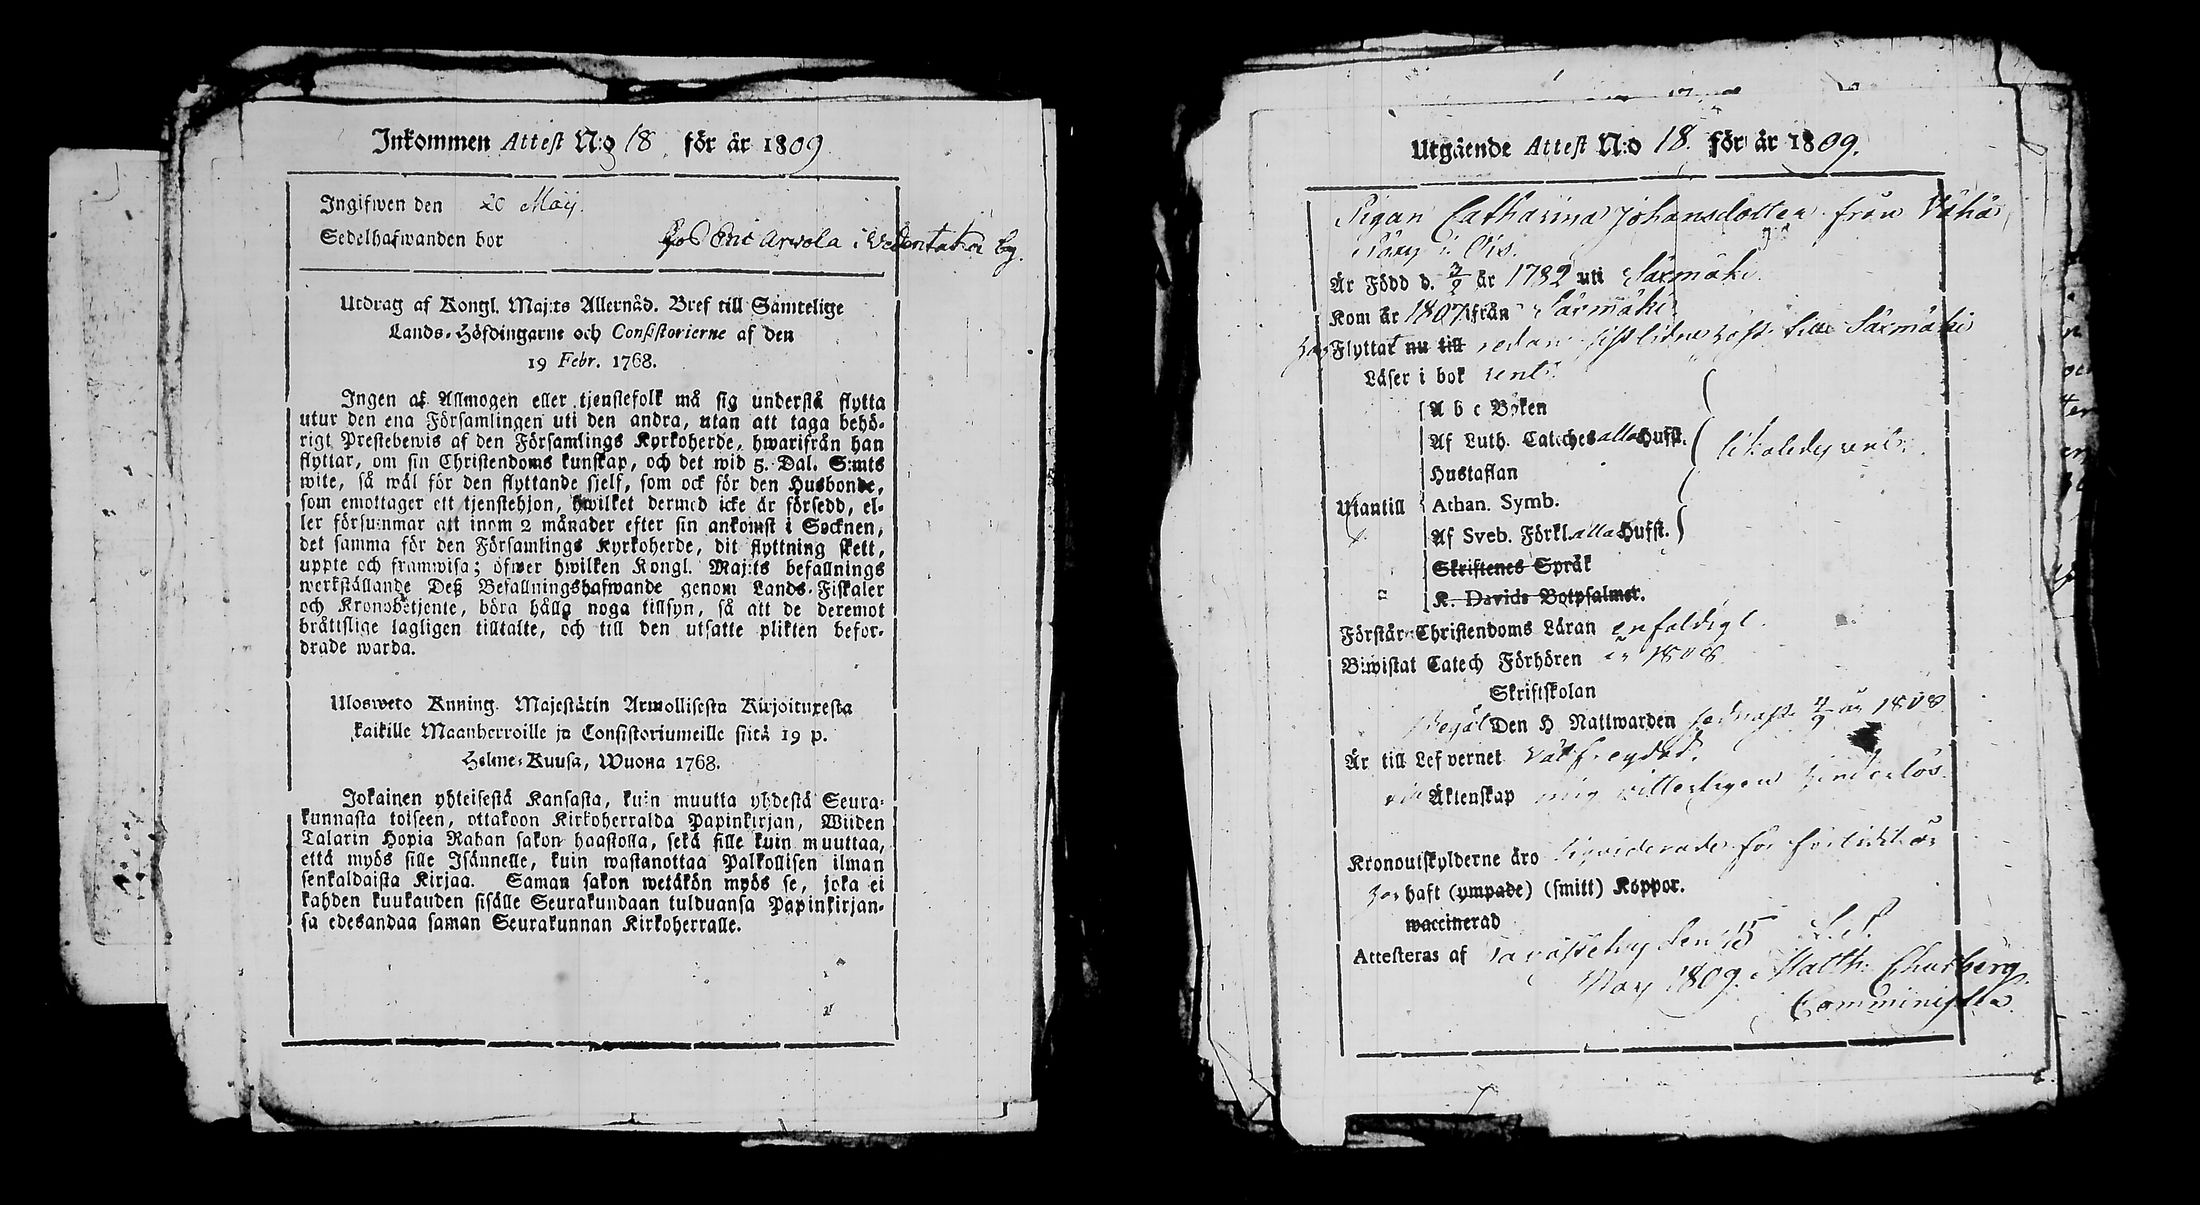 Inkommen Attest N:o 18 för år 1809
Ingifwen den 20 Maij.
Sedelhafwanden bor hos Eric Arvola i Wedentaka by.
Utdrag af Kongl. Maj:ts Allernåd. Bref till Samtelige
Lands-Höfdingarne och Consistorierne af den
19 Febr. 1768.
Ingen af Allmogen eller tjenstefolk må sig understå flytta
utur den ena Församlingen uti den andra, utan att taga behö-
rigt Prestebewis af den Församlings Kyrkoherde, hwarifrån han
flyttar, om sin Christendoms kunskap, och det wid 5. Dal. S:mts
wite, så wäl för den flyttande sjelf, som ock för den Husbonde,
som emottager ett tjenstehjon, hwilket dermed icke är försedd, el-
ler försummar att inom 2 månader efter sin ankomst i Socknen,
det samma för den Församlings Kyrkoherde, dit flyttning skett,
uppte och framwisa; öfwer hwilken Kongl. Maj:ts befallnings
werkställande Deß Befallningshafwande genom Lands-Fiskaler
och Kronobetjente, böra hålla noga tillsyn, så att de deremot
bråttslige lagligen tilltalte, och till den utsatte plikten befor-
drade warda.
Ulosweto Kuning. Majestätin Armollisesta Kirjoituxesta
kaikille Maanherroille ja Consistoriumeille siitä 19 p.
Helme-Kuusa, Wuona 1768.
Jokainen yhteisestä Kansasta, kuin muutta yhdestä Seura-
kunnasta toiseen, ottakoon Kirkoherralda Papinkirjan, Wiiden
Talarin Hopia Rahan sakon haastolla, sekä sille kuin muuttaa,
että myös sille Isännelle, kuin wastanottaa Palkollisen ilman
senkaldaista Kirjaa. Saman sakon wetäkön myös se, joka ei
kahden kuukauden sisälle Seurakundaan tulduansa Papinkirjan-
sa edesandaa saman Seurakunnan Kirkoherralle.
Utgående Attest N:o 18. för år 1809.
Pigan Catharina Johansdotter från Vähä
i Ois.
Är Född d. 3/2 år 1782 uti Säxmäki.
Kom år 1807 ifrån Säxmäki
har Flyttat nu till redan sistlidne höst till Säxmäki
Läser i bok rent.
A b c Boken
Af Luth. Cateches alla Hufst.
Hustaflan
likaledes rent.
Utantill
Athan. Symb.
Af Sveb. Förkl. alla Hufst.
Skriftenes Språk
K. Davids Botpsalmer.
Förstår Christendoms Läran enfaldigt.
Biwistat Catech Förhören år 1808
Skriftskolan
Begått Den H Nattwarden sednast 4/9 år 1808
Är till Lefvernet välfreydad.
till Äktenskap mig vitterligen hinderlös.
Kronoutskylderne äro liqviderade för förledit år
har haft (ympade) (smitt) Koppor.
waccinerad
Attesteras af den 15
May 1809. Matth: Churberg
Comminister